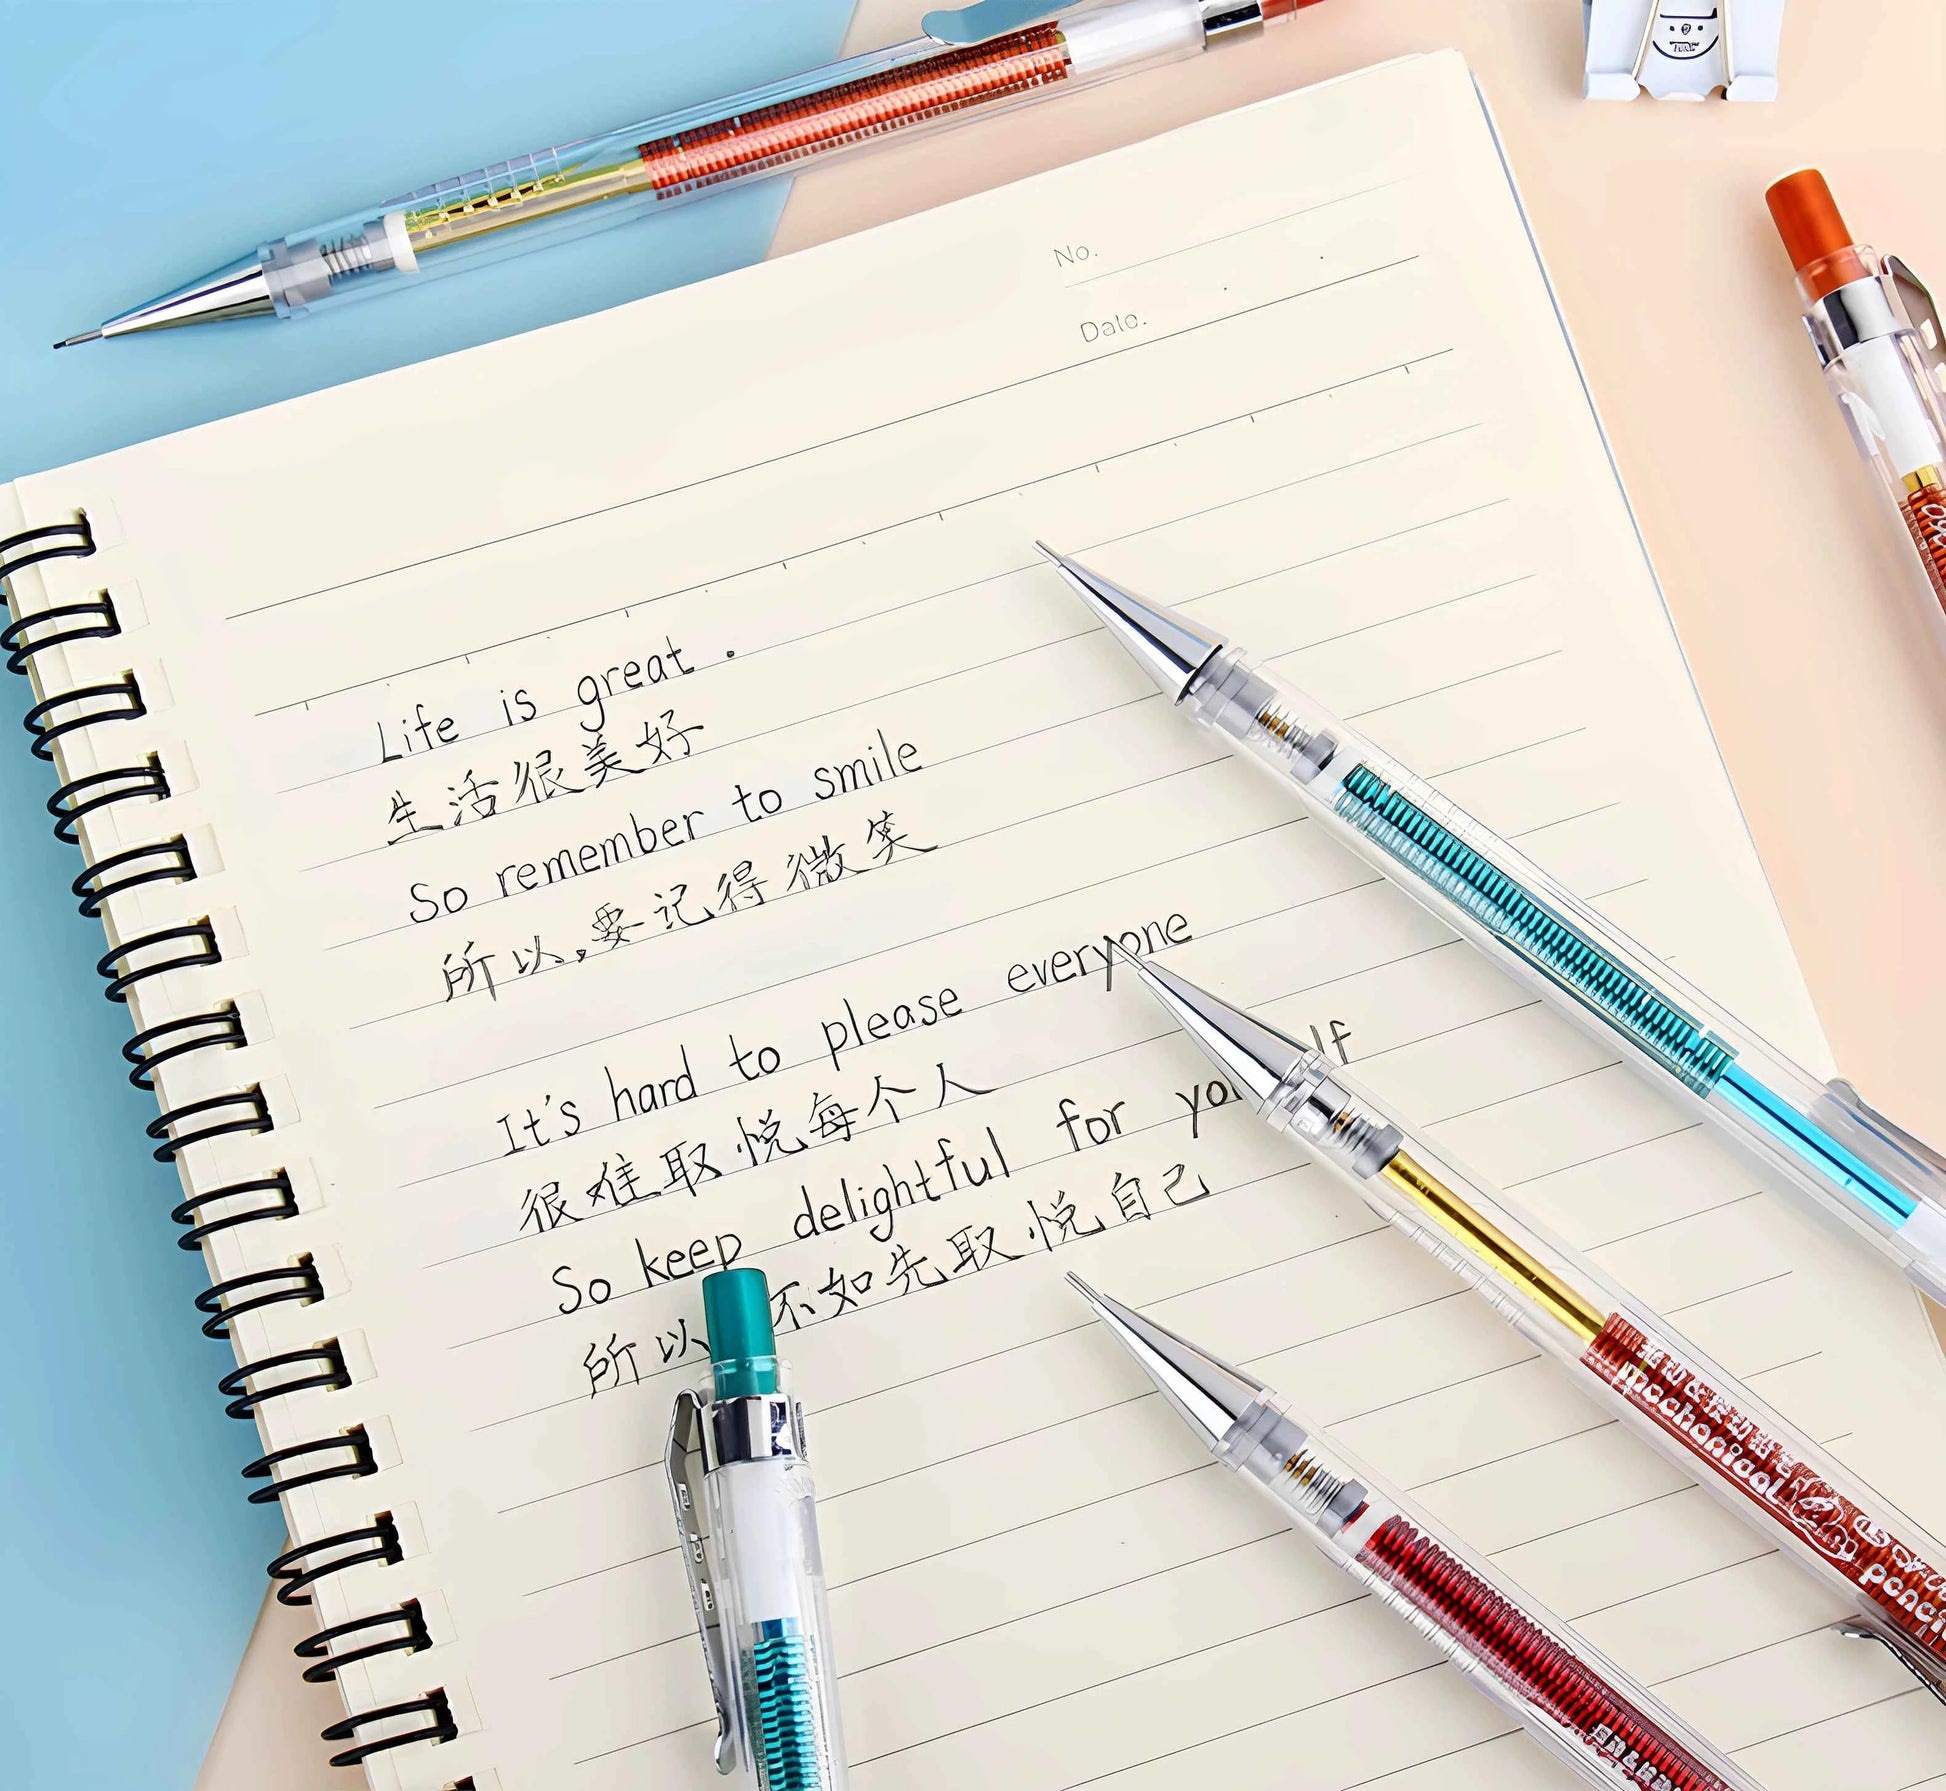 No.
Date.
Life is great.
生活很美好
So remember to smile
所以,要记得微笑
It's hard to please everyone
很难取悦每个人
So keep delightful for
所以 不如先取悦自己
mechanical